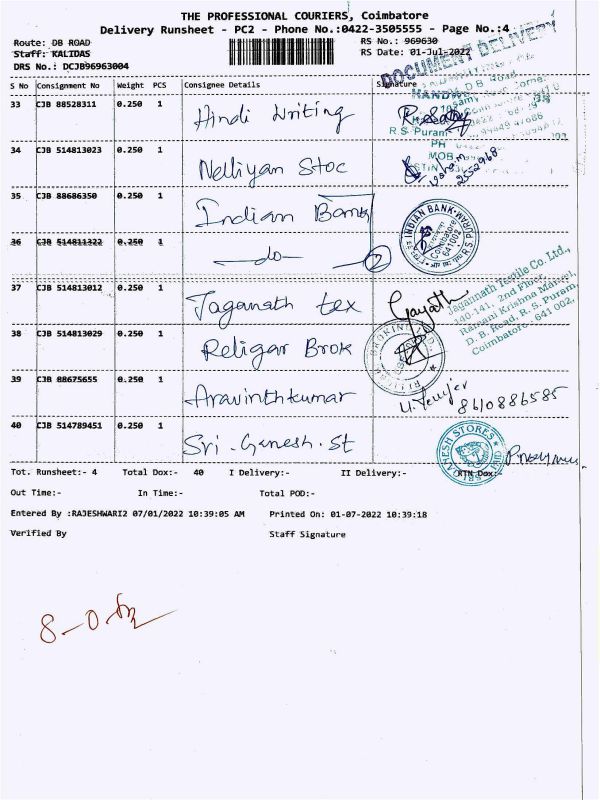 THE PROFESSIONAL COURIERS, Coimbatore
Delivery Runsheet - PC2 - Phone No.:0422-3505555 - Page No.:4
Route: DB ROAD
RS No.: 969630
Staff: KALIDAS
RS Date: 01-Jul-2022
DRS No.: DCJB96963004
DOCUMENT DELIVERY
S No Consignment No Weight PCS Consignee Details Signature
33 CJB 88528311 0.250 1 Hindi Writing
D.B. Road
R S Puram
PH
MOB
34 CJB 514813023 0.250 1 Nelliyan Stoc
2552968
35 CJB 88686350 0.250 1 Indian Bank
INDIAN BANK R.S. PURAM Coimbatore 641002
36 CJB 514811322 0.250 1 -do- 2
37 CJB 514813012 0.250 1 Jaganath tex Gayath
Jagannath Textile Co. Ltd.,
140-141, 2nd Floor,
Ramani Krishna
D. B. Road, R. S. Puram,
Coimbatore - 641 002.
38 CJB 514813029 0.250 1 Religar Brok
39 CJB 88675655 0.250 1 Aravinthkumar
8610886585
40 CJB 514789451 0.250 1 Sri. Ganesh. St
SRI GANESH STORES
Tot. Runsheet:- 4 Total Dox:- 40 I Delivery:- II Delivery:- RTN Dox:-
Out Time:- In Time:- Total POD:-
Entered By :RAJESHWARI2 07/01/2022 10:39:05 AM Printed On: 01-07-2022 10:39:18
Verified By Staff Signature